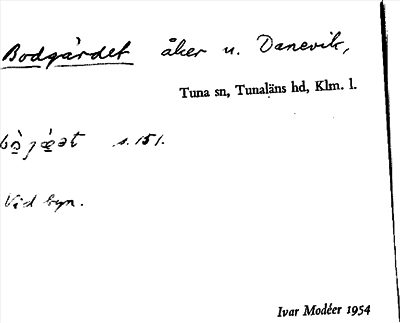 Bodgärdet åker u. Danevik,
Tuna sn, Tunaläns hd, Klm. l.
s. 151.
Vid byn.
Ivar Modéer 1954